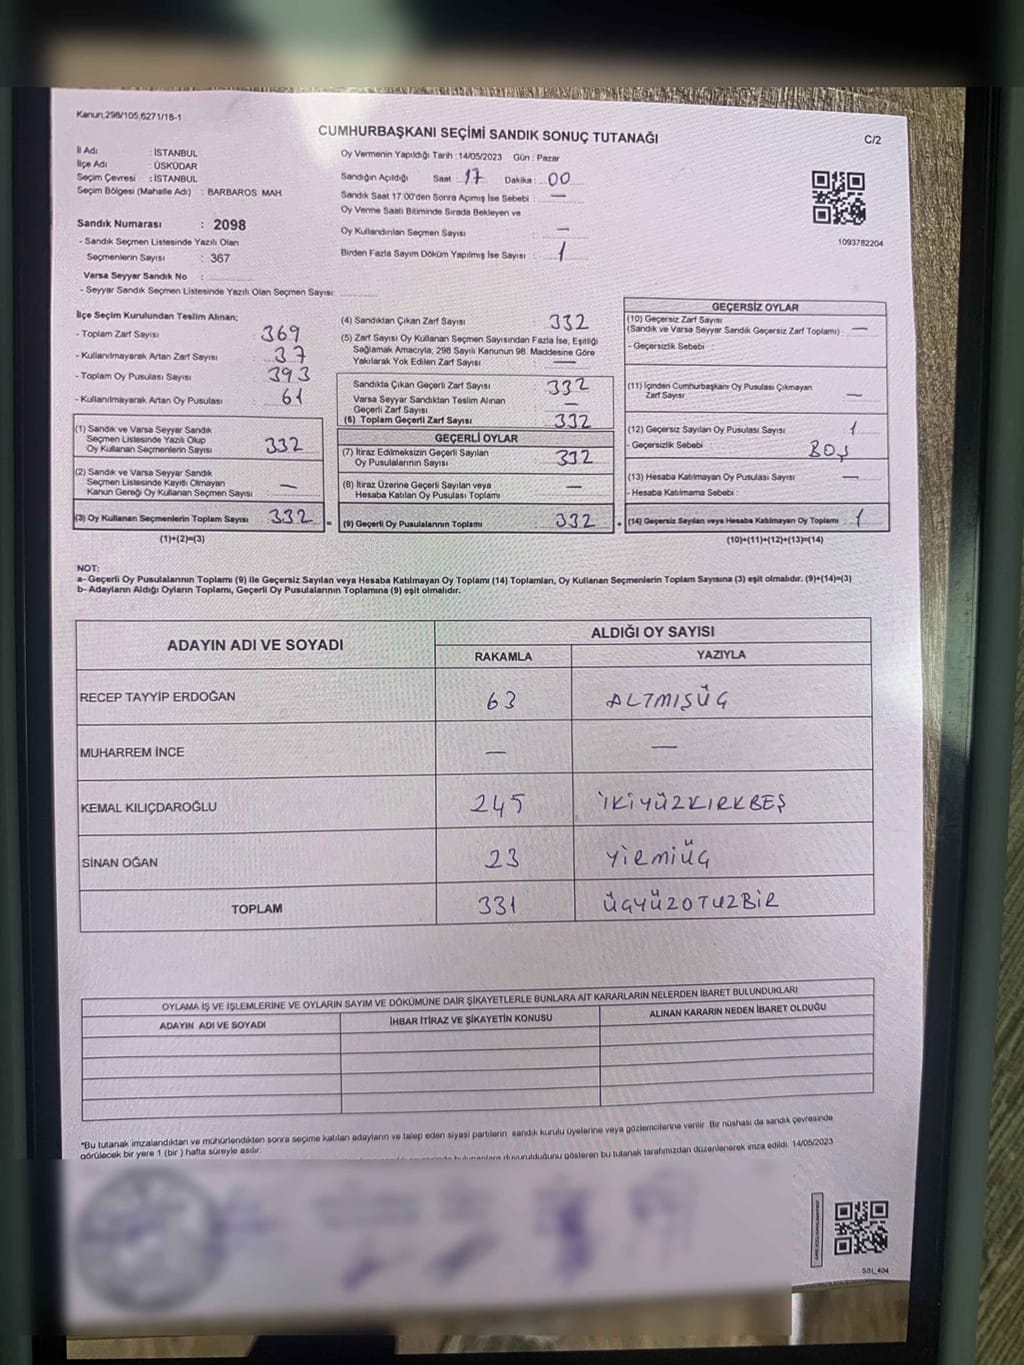 Kanun,298/105,6271/18-1
CUMHURBAŞKANI SEÇİMİ SANDIK SONUÇ TUTANAĞI
C/2
İl Adı : İSTANBUL
İlçe Adı : ÜSKÜDAR
Seçim Çevresi : İSTANBUL
Seçim Bölgesi (Mahalle Adı) : BARBAROS MAH.
Sandık Numarası : 2098
- Sandık Seçmen Listesinde Yazılı Olan
Seçmenlerin Sayısı : 367
Varsa Seyyar Sandık No :
- Seyyar Sandık Seçmen Listesinde Yazılı Olan Seçmen Sayısı:
Oy Vermenin Yapıldığı Tarih :14/05/2023 Gün : Pazar
Sandığın Açıldığı Saat : 17 Dakika : 00
Sandık Saat 17:00'den Sonra Açımış İse Sebebi : —
Oy Verme Saati Bitiminde Sırada Bekleyen ve
Oy Kullandırılan Seçmen Sayısı : —
Birden Fazla Sayım Döküm Yapılmış İse Sayısı : 1
1093782204
İlçe Seçim Kurulundan Teslim Alınan;
- Toplam Zarf Sayısı : 369
- Kullanılmayarak Artan Zarf Sayısı : 37
- Toplam Oy Pusulası Sayısı : 393
- Kullanılmayarak Artan Oy Pusulası : 61
(1) Sandık ve Varsa Seyyar Sandık
Seçmen Listesinde Yazılı Olup
Oy Kullanan Seçmenlerin Sayısı : 332
(2) Sandık ve Varsa Seyyar Sandık
Seçmen Listesinde Kayıtlı Olmayan
Kanun Gereği Oy Kullanan Seçmen Sayısı : —
(3) Oy Kullanan Seçmenlerin Toplam Sayısı : 332 =
(1)+(2)=(3)
(4) Sandıktan Çıkan Zarf Sayısı : 332
(5) Zarf Sayısı Oy Kullanan Seçmen Sayısından Fazla İse, Eşitliği
Sağlamak Amacıyla; 298 Sayılı Kanunun 98. Maddesine Göre
Yakılarak Yok Edilen Zarf Sayısı : —
Sandıkta Çıkan Geçerli Zarf Sayısı : 332
Varsa Seyyar Sandıktan Teslim Alınan
Geçerli Zarf Sayısı : —
(6) Toplam Geçerli Zarf Sayısı : 332
GEÇERLİ OYLAR
(7) İtiraz Edilmeksizin Geçerli Sayılan
Oy Pusulalarının Sayısı : 332
(8) İtiraz Üzerine Geçerli Sayılan veya
Hesaba Katılan Oy Pusulası Toplamı : —
(9) Geçerli Oy Pusulalarının Toplamı : 332 +
GEÇERSİZ OYLAR
(10) Geçersiz Zarf Sayısı
(Sandık ve Varsa Seyyar Sandık Geçersiz Zarf Toplamı) : —
- Geçersizlik Sebebi :
(11) İçinden Cumhurbaşkanı Oy Pusulası Çıkmayan
Zarf Sayısı : —
(12) Geçersiz Sayılan Oy Pusulası Sayısı : 1
- Geçersizlik Sebebi : BOŞ
(13) Hesaba Katılmayan Oy Pusulası Sayısı : —
- Hesaba Katılmama Sebebi :
(14) Geçersiz Sayılan veya Hesaba Katılmayan Oy Toplamı : 1
(10)+(11)+(12)+(13)=(14)
NOT:
a- Geçerli Oy Pusulalarının Toplamı (9) ile Geçersiz Sayılan veya Hesaba Katılmayan Oy Toplamı (14) Toplamları, Oy Kullanan Seçmenlerin Toplam Sayısına (3) eşit olmalıdır. (9)+(14)=(3)
b- Adayların Aldığı Oyların Toplamı, Geçerli Oy Pusulalarının Toplamına (9) eşit olmalıdır.
ADAYIN ADI VE SOYADI
ALDIĞI OY SAYISI
RAKAMLA YAZIYLA
RECEP TAYYİP ERDOĞAN 63 ALTMIŞÜÇ
MUHARREM İNCE — —
KEMAL KILIÇDAROĞLU 245 İKİYÜZKIRKBEŞ
SİNAN OĞAN 23 YİRMİÜÇ
TOPLAM 331 ÜÇYÜZOTUZBİR
OYLAMA İŞ VE İŞLEMLERİNE VE OYLARIN SAYIM VE DÖKÜMÜNE DAİR ŞİKAYETLERLE BUNLARA AİT KARARLARIN NELERDEN İBARET BULUNDUKLARI
ADAYIN ADI VE SOYADI İHBAR İTİRAZ VE ŞİKAYETİN KONUSU ALINAN KARARIN NEDEN İBARET OLDUĞU
*Bu tutanak imzalandıktan ve mühürlendikten sonra seçime katılan adayların ve talep eden siyasi partilerin sandık kurulu üyelerine veya gözlemcilerine verilir. Bir nüshası da sandık çevresinde
görülecek bir yere 1 (bir ) hafta süreyle asılır.
bulunanlara duyurulduğunu gösteren bu tutanak tarafımızdan düzenlenerek imza edildi. 14/05/2023